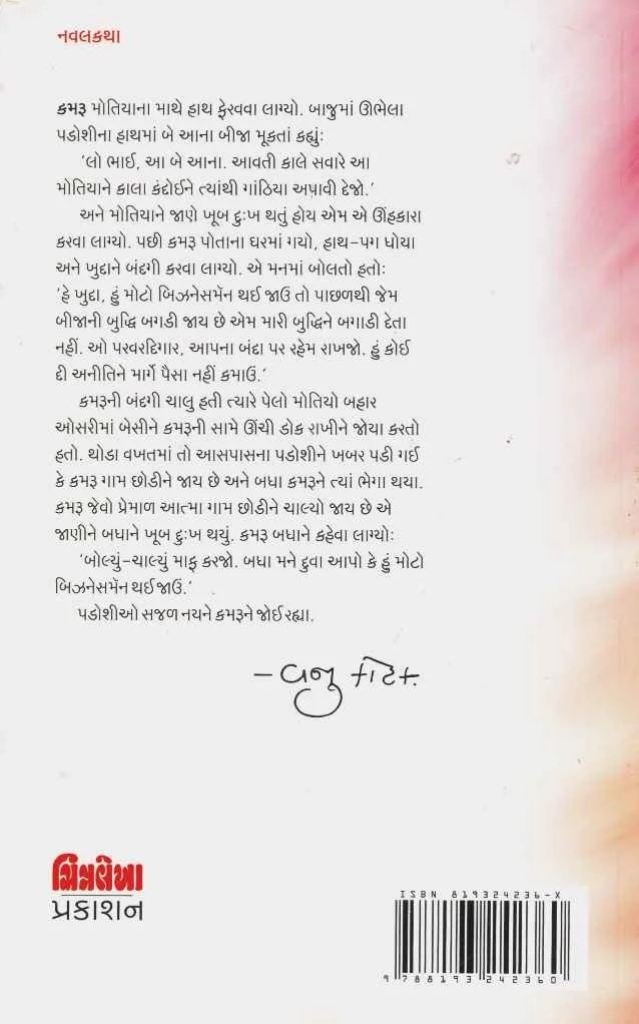 નવલકથા
કમરૂ મોતિયાના માથે હાથ ફેરવવા લાગ્યો. બાજુમાં ઊભેલા
પડોશીના હાથમાં બે આના બીજા મૂકતાં કહ્યુંઃ
‘લો ભાઈ, આ બે આના. આવતી કાલે સવારે આ
મોતિયાને કાલા કંદોઈને ત્યાંથી ગાંઠિયા અપાવી દેજો.’
અને મોતિયાને જાણે ખૂબ દુઃખ થતું હોય એમ એ ઊંહકારા
કરવા લાગ્યો. પછી કમરૂ પોતાના ઘરમાં ગયો, હાથ-પગ ધોયા
અને ખુદાને બંદગી કરવા લાગ્યો. એ મનમાં બોલતો હતોઃ
‘હે ખુદા, હું મોટો બિઝનેસમૅન થઈ જાઉં તો પાછળથી જેમ
બીજાની બુદ્ધિ બગડી જાય છે એમ મારી બુદ્ધિને બગાડી દેતા
નહીં. ઓ પરવરદિગાર, આપના બંદા પર રહેમ રાખજો. હું કોઈ
દી અનીતિને માર્ગે પૈસા નહીં કમાઉં.’
કમરૂની બંદગી ચાલુ હતી ત્યારે પેલો મોતિયો બહાર
ઓસરીમાં બેસીને કમરૂની સામે ઊંચી ડોક રાખીને જોયા કરતો
હતો. થોડા વખતમાં તો આસપાસના પડોશીને ખબર પડી ગઈ
કે કમરૂ ગામ છોડીને જાય છે અને બધા કમરૂને ત્યાં ભેગા થયા.
કમરૂ જેવો પ્રેમાળ આત્મા ગામ છોડીને ચાલ્યો જાય છે એ
જાણીને બધાને ખૂબ દુઃખ થયું. કમરૂ બધાને કહેવા લાગ્યોઃ
‘બોલ્યું-ચાલ્યું માફ કરજો. બધા મને દુવા આપો કે હું મોટો
બિઝનેસમૅન થઈ જાઉં.’
પડોશીઓ સજળ નયને કમરૂને જોઈ રહ્યા.
– વજુ કોટક
ચિત્રલેખા
પ્રકાશન
ISBN 819324236-X
9 788193 242360